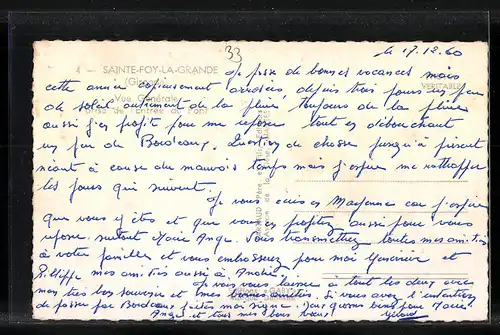 33
le 17.12.60
4 - SAINTE-FOY-LA-GRANDE
(Gironde)
Vue Générale
Prise de l'Entrée du Pont
VÉRITABLE
Je passe de bonnes vacances mais
cette année copieusement arrosées, depuis trois jours un peu
de soleil autrement de la pluie, toujours de la pluie
aussi j'en profite pour me reposer tout en débouchant
un peu de Bordeaux. Question de chasse jusqu'à présent
néant à cause du mauvais temps mais j'espère me rattrapper
les jours qui suivent.
Je vous écris en Mayenne car j'espère
que vous y êtes et que vous en profitez aussi pour vous
reposer surtout Marie Ange. Vous transmettrez toutes mes amitiés
à votre famille et vous embrasserez pour moi
Philippe mes amitiés aussi à André
Je vous laisse à tout les deux avec
mon très bon souvenir et mes bonnes amitiés. Si vous avez l'intention
de passer par Bordeaux faites moi signe.
Ange et tous mes bons vœux! Gérard